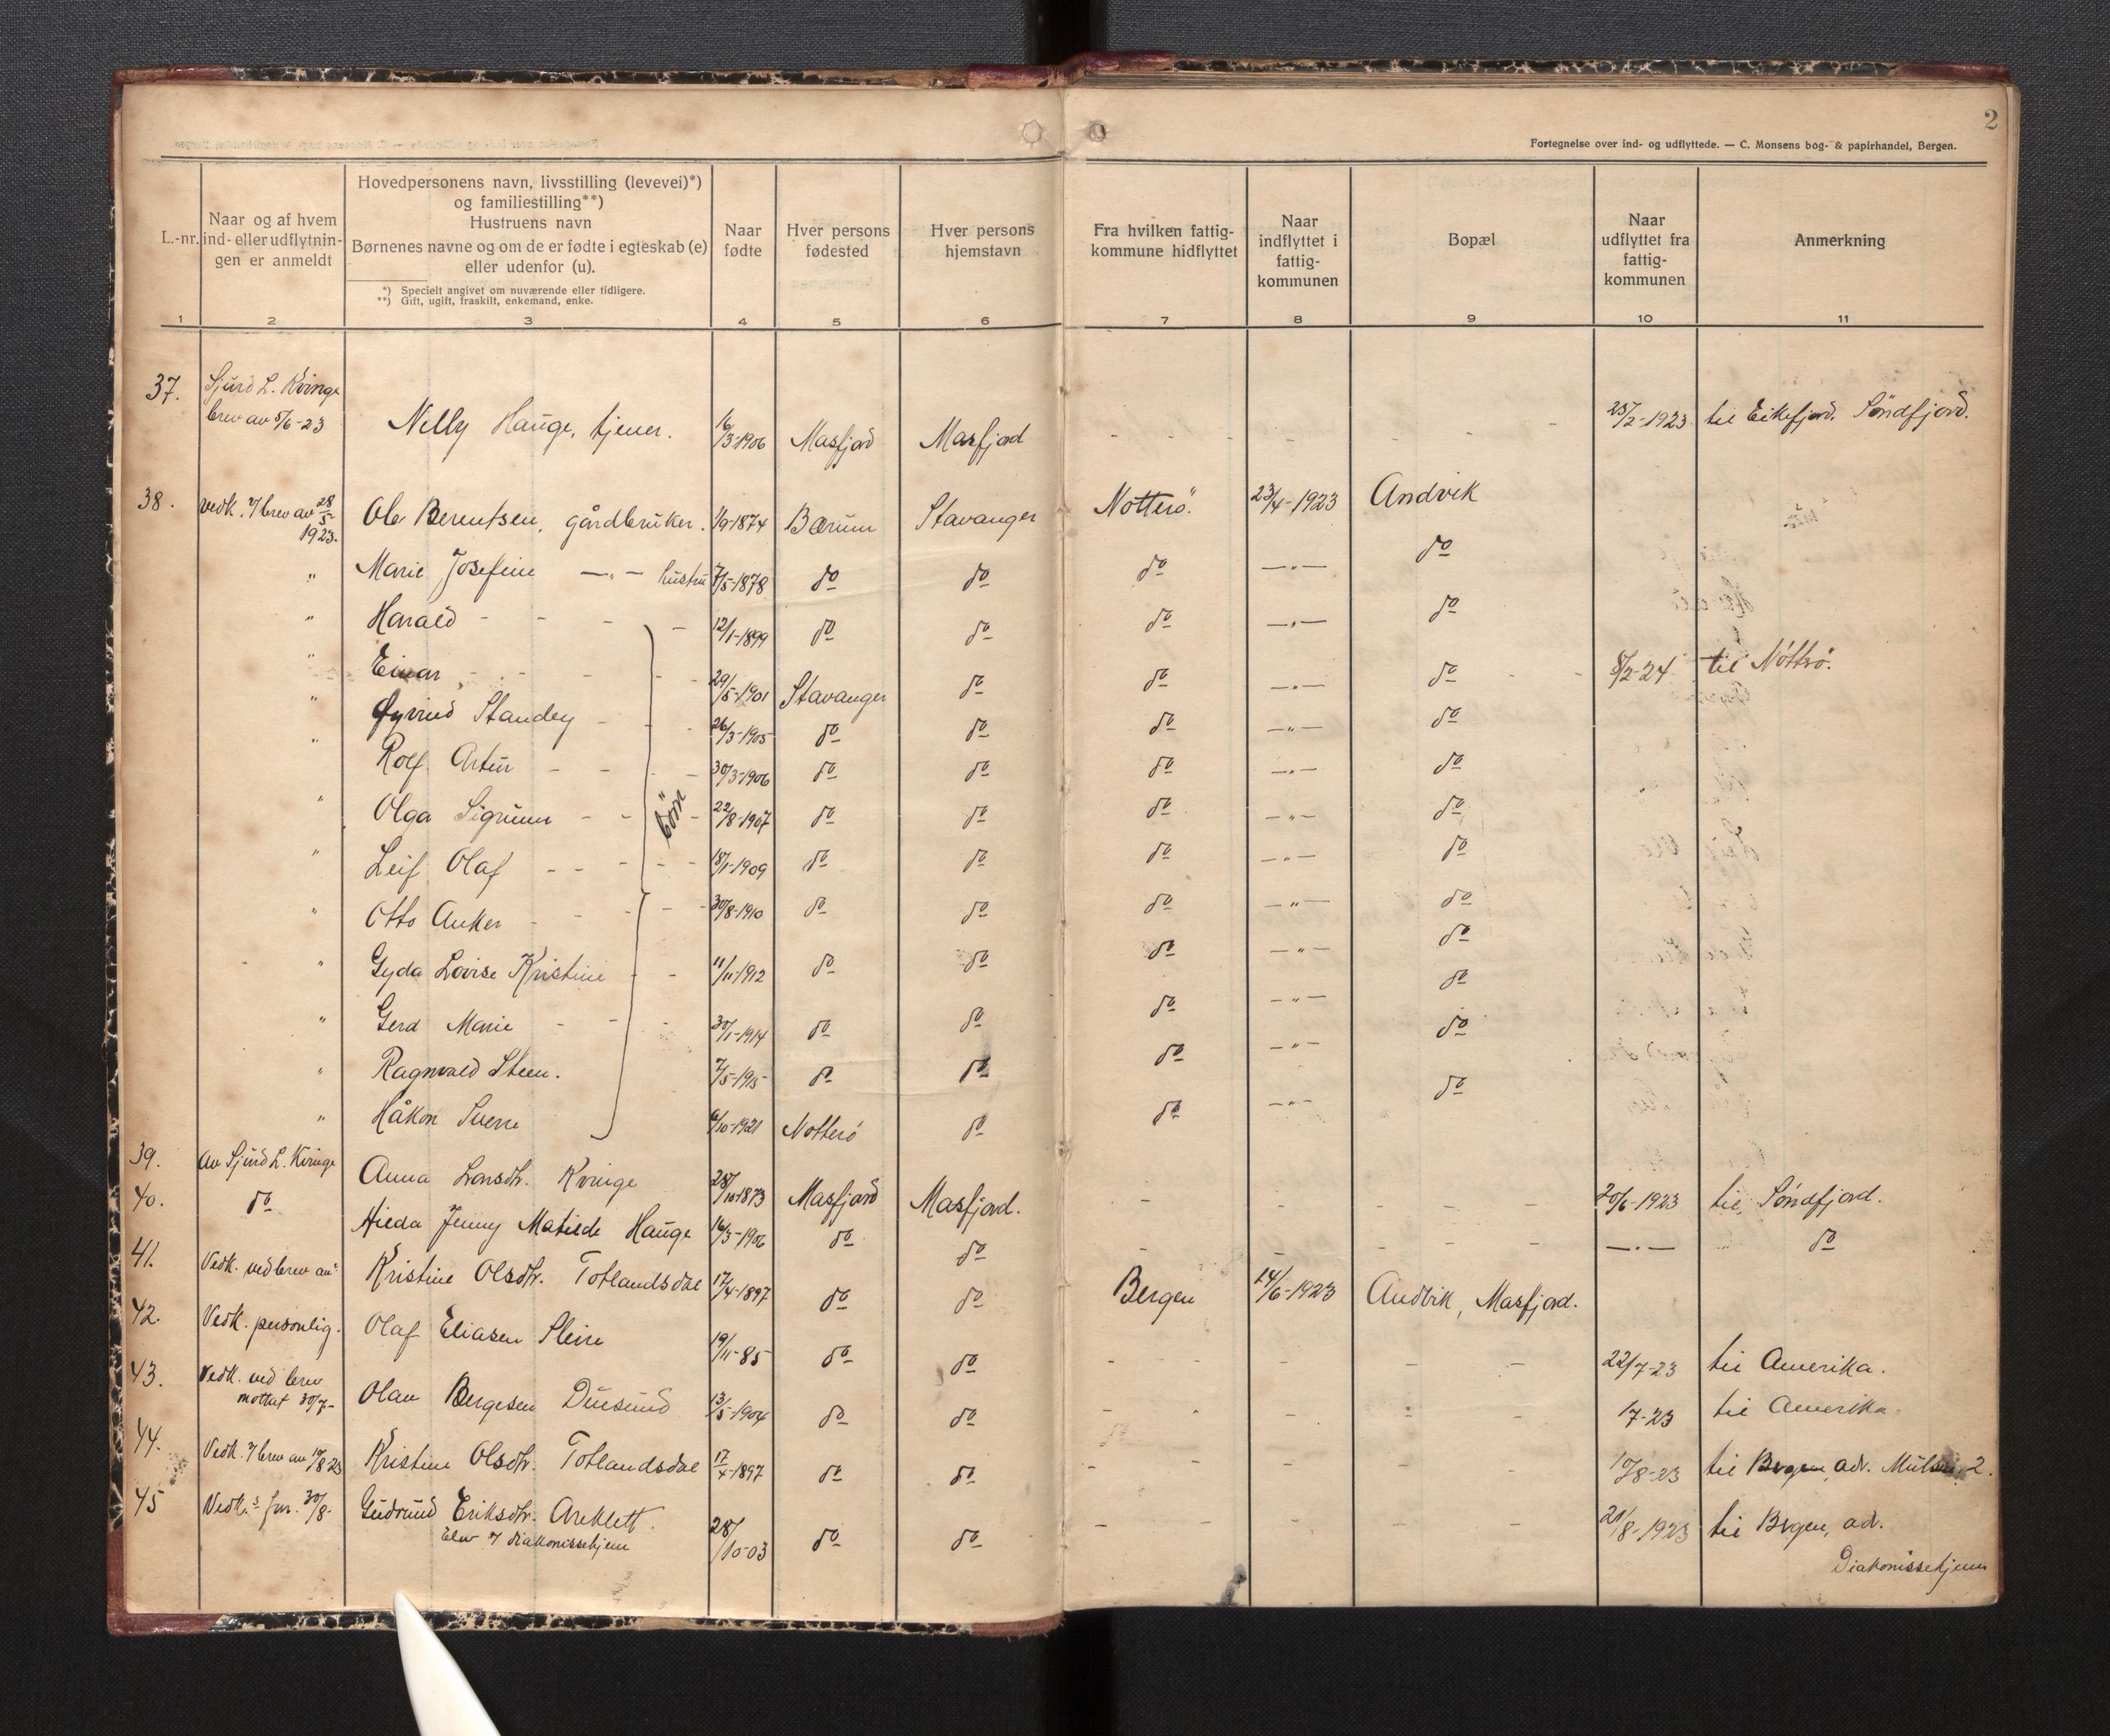 2
Fortegnelse over ind- og udflyttede. — C. Monsens bog- & papirhandel, Bergen.
L.-nr.
Naar og af hvem
ind- eller udflytnin-
gen er anmeldt
Hovedpersonens navn, livsstilling (levevei)*)
og familiestilling**)
Hustruens navn
Børnenes navne og om de er fødte i egteskab (e)
eller udenfor (u).
*) Specielt angivet om nuværende eller tidligere.
**) Gift, ugift, fraskilt, enkemand, enke.
Naar
fødte
Hver persons
fødested
Hver persons
hjemstavn
Fra hvilken fattig-
kommune hidflyttet
Naar
indflyttet i
fattig-
kommunen
Bopæl
Naar
udflyttet fra
fattig-
kommunen
Anmerkning
1 2 3 4 5 6 7 8 9 10 11
37. Sjurd L. Kvinge
brev av 5/6-23 Nelly Hauge, tjener. 16/3-1906 Masfjord Masfjord - - - - - 25/2-1923 til Eikefjord. Söndfjord.
38. vedk. 7 brev av 28/5-1923. Ole Berentsen, gårdbruker. 1/9-1874 Bærum Stavanger Nötterö. 23/4-1923 Andvik
" Marie Josefine —"— hustru 7/5-1878 do do do —"— do
" Harald - - - - 12/1-1899 do do do —"— do
" Einar - - - - 29/5-1901 Stavanger do do —"— do - - 8/2-24 til Nötterö.
" Øyvind Standey - - - 26/3-1905 do do do —"— do
" Rolf Artur - - - - 30/3-1906 do do do —"— do
" Olga Sigrunn - - - 22/8-1907 do do do —"— do
börn
" Leif Olaf - - - - - 18/1-1909 do do do —"— do
" Otto Anker - - - - 30/8-1910 do do do —"— do
" Gyda Lovise Kristine - - 11/11-1912 do do do —"— do
" Gerd Marie - - - 30/1-1914 do do do —"— do
" Ragnvald Steen. 7/5-1915 do do do —"— do
" Håkon Sverre 6/10-1921 Notterö do do —"— do
39. Av Sjurd L. Kvinge Anna Larsdtr. Kvinge 28/10-1873 Masfjord Masfjord. - - - - - 20/6-1923 til Söndfjord.
40. do Hilda Jenny Matilde Hauge 16/3-1906 do do - - - - - —"— " do
41. Vedk. ved brev av Kristine Olsdtr. Totlandsdal 17/4-1897 do do Bergen 14/6-1923 Andvik, Masfjord.
42. Vedk. personlig. Olaf Eliasen Sleire 19/11-85 do do - - - - - 22/7-23 til Amerika.
43. Vedk. ved brev
mottat 30/7- Olav Bergesen Duesund 13/5-1904 do do - - - - - 1/7-23 til Amerika
44. Vedk. 7 brev av 19/8 23 Kristine Olsdtr. Totlandsdal 17/4-1897 do do - - - - - 10/8-23 til Bergen, adr. 2.
45 Vedk.s 30/8- Gudrund Eriksdtr. Areklett.
Elev 7 diakonissehjem 28/10-03 do do - - - - - 21/8-1923 til Bergen, ad.
Diakonissehjem